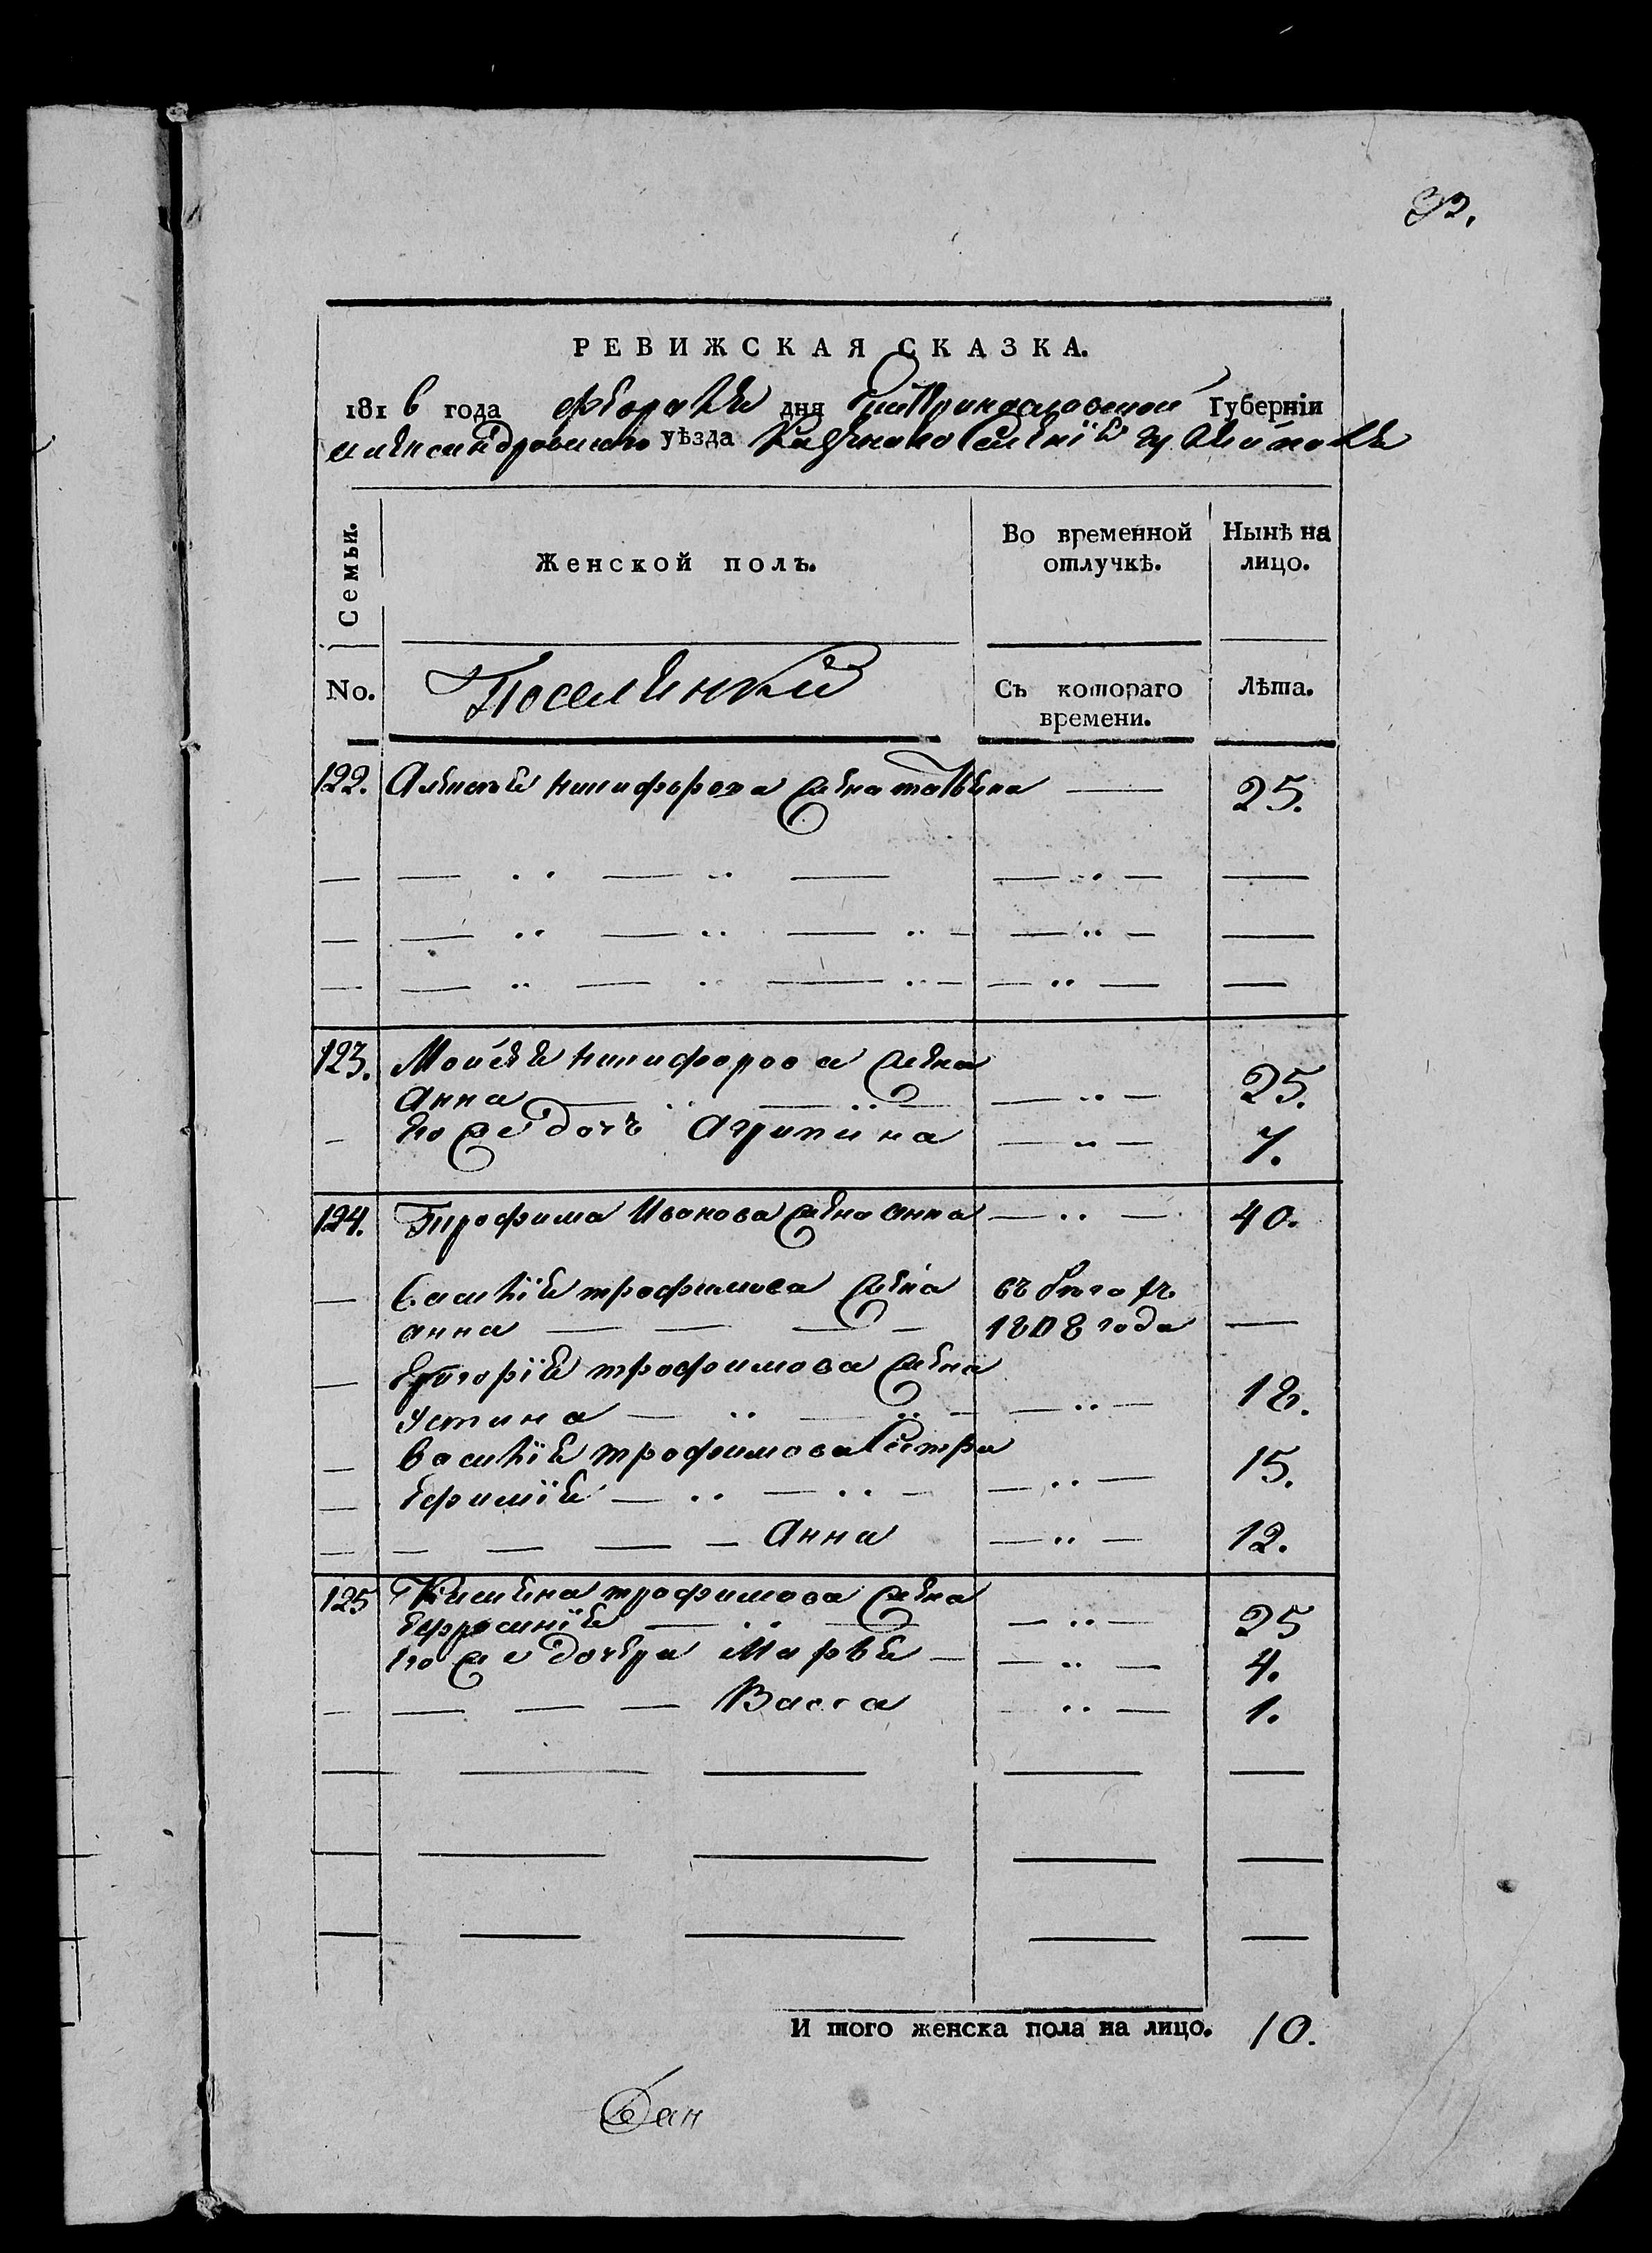 92.
РЕВИЖСКАЯ СКАЗКА.
1816 года февраля дня Екатеринославской Губерніи
Александровскаго уѣзда Казеннаго селенія
Семьи.
Женской полъ.
Во временной отлучкѣ.
Нынѣ на лицо.
No.
Поселянки
Съ котораго времени.
Лѣта.
122. Алексея никифорова жена татьяна — 25.
123. Мойсея никифорова жена
Анна 25.
его же дочь Агрипина 7.
124. Трофима Иванова жена анна 40.
Василія трофимова жена
анна 1808 года —
Григорія трофимова жена
Устина 18.
Василія трофимова сестра
Ефимія 15.
Анна 12.
125 трофимова жена
Ефросинія 25
его же дочери Марья 4.
Васса 1.
И того женска пола на лицо. 10.